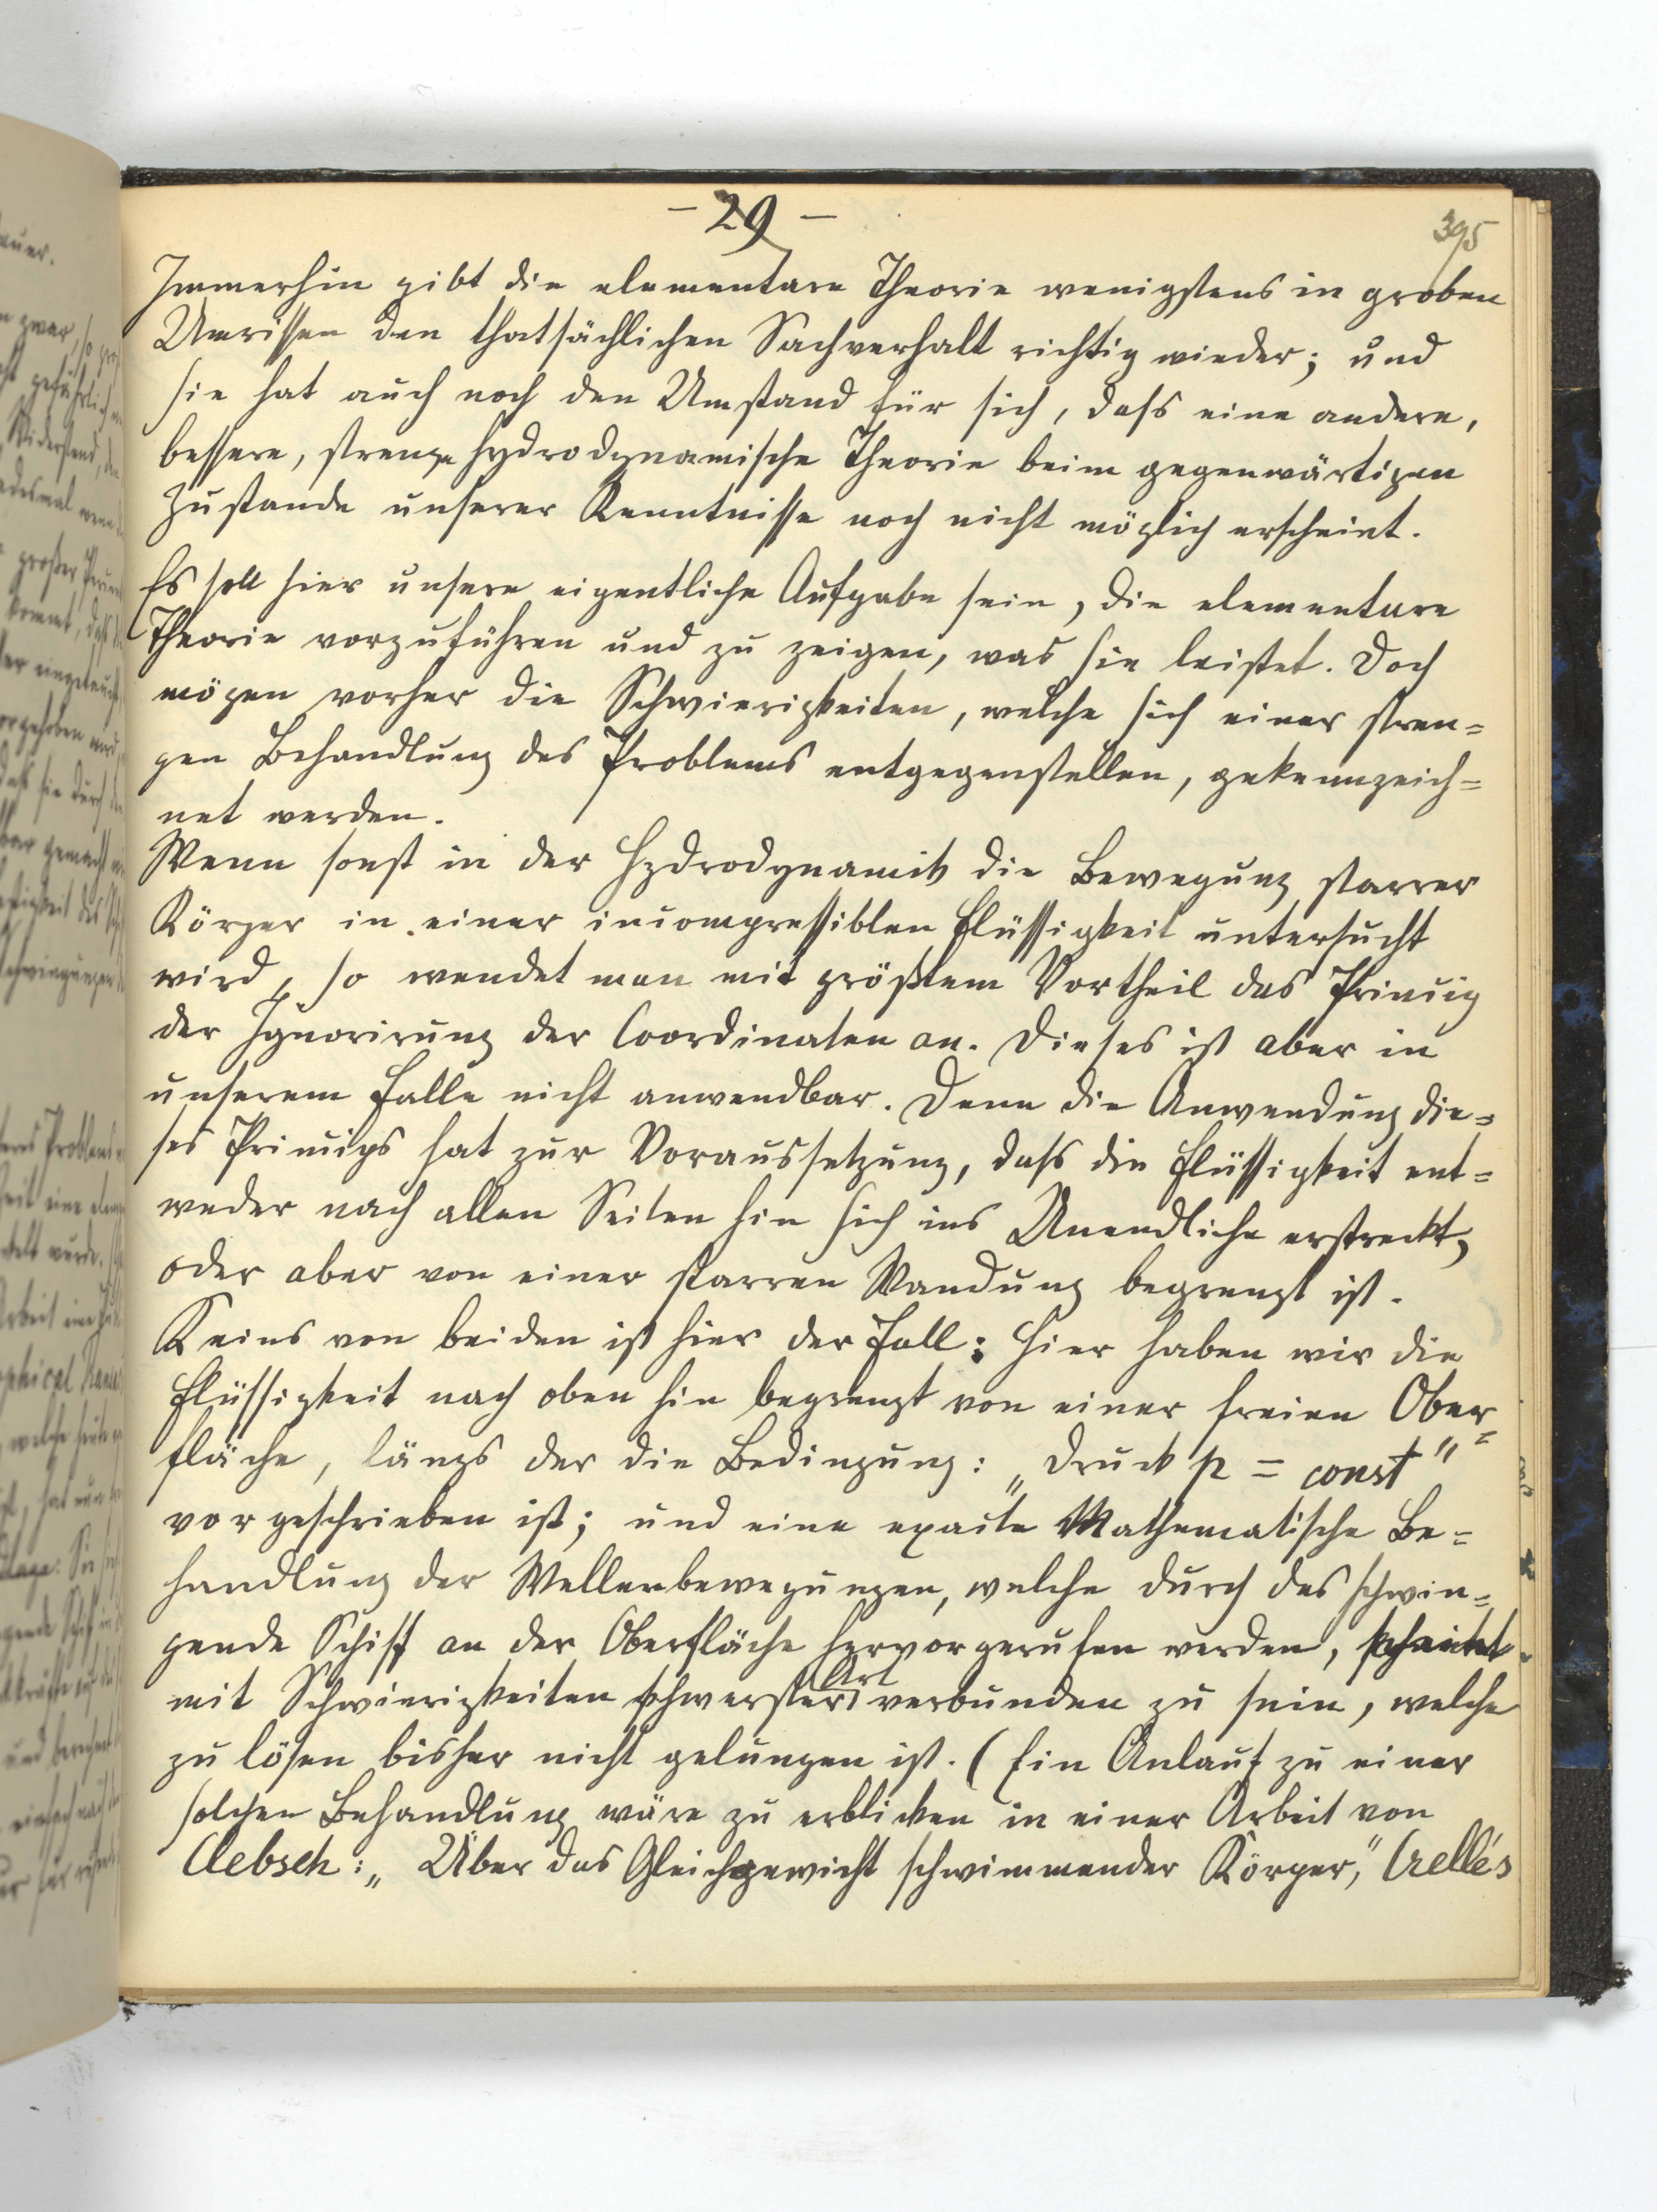 - 29 -
395
Immerhin gibt die elementare Theorie wenigstens in groben
Umrissen den thatsächlichen Sachverhalt richtig wieder; und
sie hat auch noch den Umstand für sich, dass eine andere,
bessere, strenge hydrodynamische Theorie beim gegenwärtigen
Zustande unserer Kenntnisse noch nicht möglich erscheint.
Es soll hier unsere eigentliche Aufgabe sein, die elementare
Theorie vorzuführen und zu zeigen, was sie leistet. Doch
mögen vorher die Schwierigkeiten, welche sich einer stren=
gen Behandlung des Problems entgegenstellen, gekennzeich=
net werden.
Wenn sonst in der Hydrodynamik die Bewegung starrer
Körper in einer incompressiblen Flüssigkeit untersucht
wird, so wendet man mit größtem Vortheil das Princip
der Ignorirung der Coordinaten an. Dieses ist aber in
unserem Falle nicht anwendbar. Denn die Anwendung die=
ses Princips hat zur Voraussetzung, dass die Flüssigkeit ent=
weder nach allen Seiten hin sich ins Unendliche erstreckt,
oder aber von einer starren Wandung begrenzt ist.
Keins von beiden ist hier der Fall: Hier haben wir die
Flüssigkeit nach oben hin begrenzt von einer freien Ober=
fläche, längs der die Bedingung: „Druck p = const"
vorgeschrieben ist; und eine exacte Mathematische Be=
handlung der Wellenbewegungen, welche durch das schwin=
gende Schiff an der Oberfläche hervorgerufen werden, scheint
mit Schwierigkeiten schwerster Art verbunden zu sein, welche
zu lösen bisher nicht gelungen ist. (Ein Anlauf zu einer
solchen Behandlung wäre zu erblicken in einer Arbeit von
Clebsch: „Über das Gleichgewicht schwimmender Körper," Crelle's